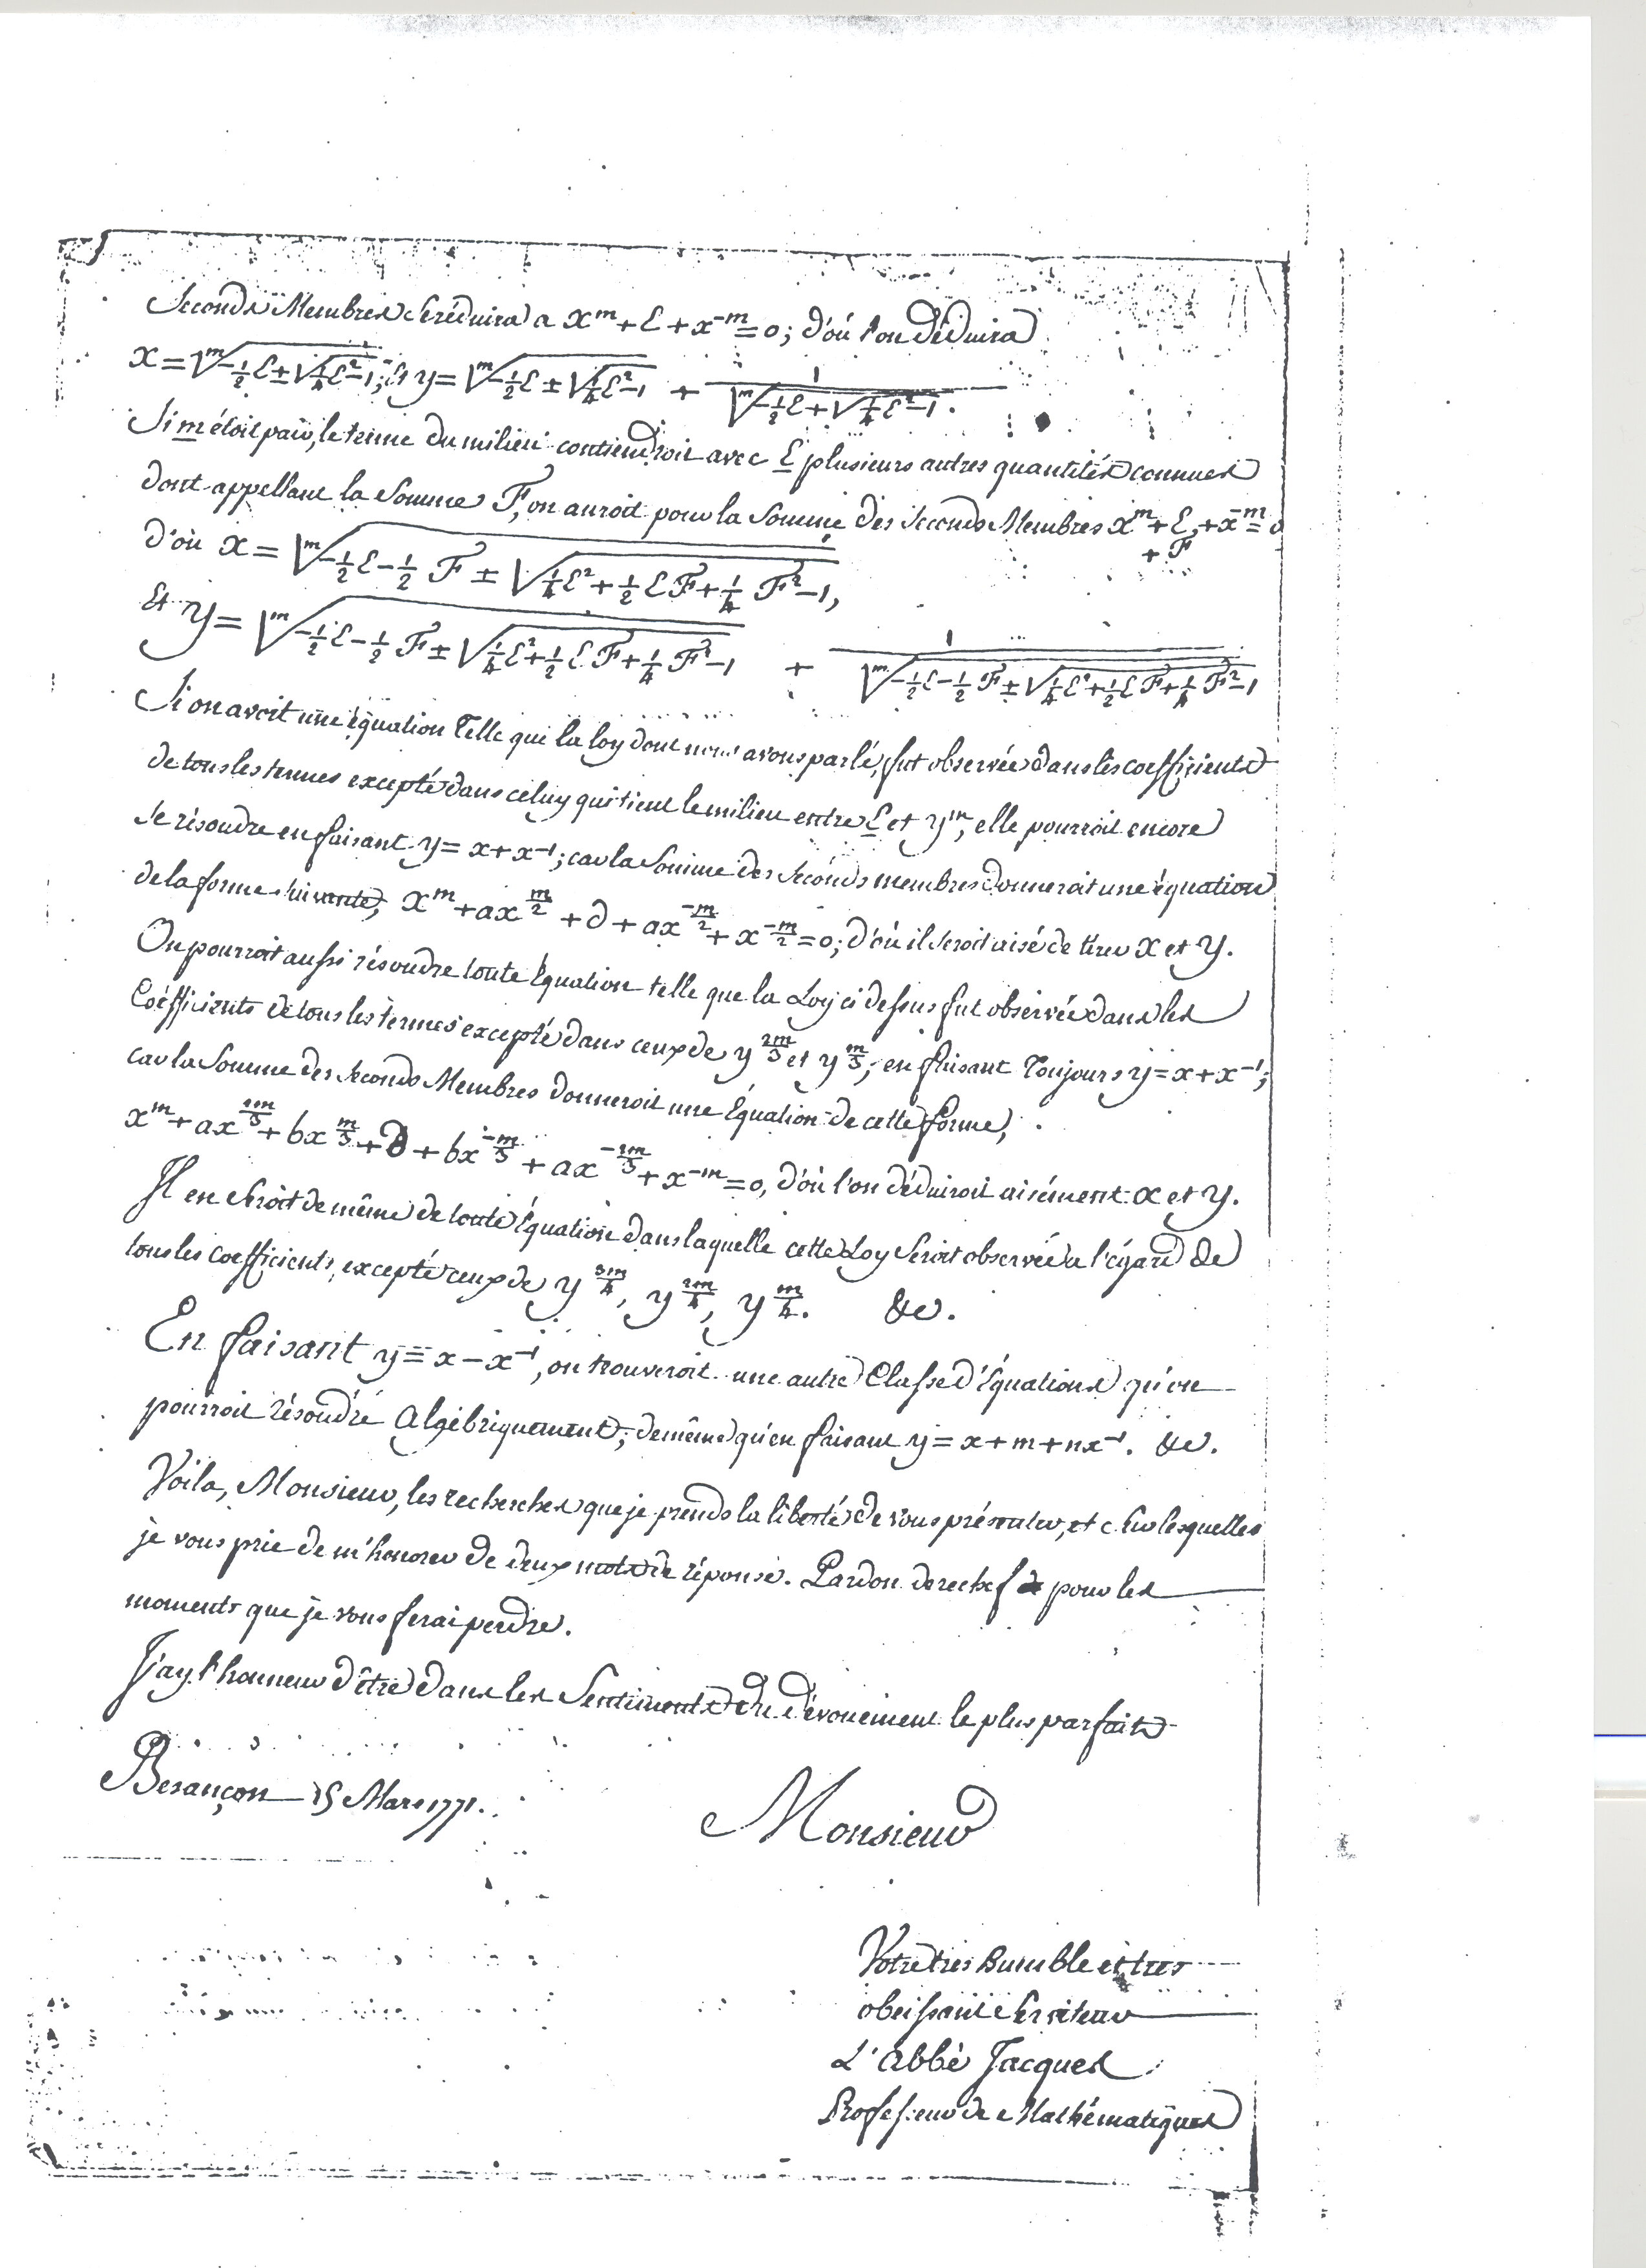 Seconds Membres se réduira a x^m + E + x^-m = 0; d'où l'on déduira
x = √^m(-1/2 E ± √(1/4 E² - 1)); Et y = √^m(-1/2 E ± √(1/4 E² - 1)) + 1/√^m(-1/2 E + √(1/4 E² - 1)).
Si m étoit pair, le terme du milieu contiendroit avec E plusieurs autres quantités connues
dont appellant la Somme F, on auroit pour la Somme des Seconds Membres x^m + E + F + x^-m = 0
d'où x = √^m(-1/2 E - 1/2 F ± √(1/4 E² + 1/2 EF + 1/4 F² - 1)),
Et y = √^m(-1/2 E - 1/2 F ± √(1/4 E² + 1/2 EF + 1/4 F² - 1)) + 1/√^m(-1/2 E - 1/2 F ± √(1/4 E² + 1/2 EF + 1/4 F² - 1))
Si on avoit une équation Telle que la loy dont nous avons parlé, fut observée dans les coefficients
de tous les termes excepté dans celuy qui tient le milieu entre E et y^m, elle pourroit encore
se résoudre en faisant y = x + x^-1; car la Somme des Seconds membres donneroit une équation
de la forme suivante, x^m + ax^(m/2) + d + ax^(-m/2) + x^(-m/2) = 0; d'où il seroit aisé de tirer x et y.
On pourroit aussi résoudre toute Equation telle que la Loy ci dessus fut observée dans les
Coéfficients de tous les termes excepté dans ceux de y^(2m/3) et y^(m/3); en faisant Toujours y = x + x^-1;
car la Somme des Seconds Membres donneroit une Équation de cette forme,
x^m + ax^(2m/3) + bx^(m/3) + d + bx^(-m/3) + ax^(-2m/3) + x^-m = 0, d'où l'on déduiroit aisément x et y.
Il en seroit de même de toute Équation dans laquelle cette Loy seroit observée a l'égard de
tous les coefficients, excepté ceux de y^(3m/4), y^(2m/4), y^(m/4). &c.
En faisant y = x - x^-1, on trouveroit une autre Classe d'Équations qu'on
pourroit résoudre algébriquement; de même qu'en faisant y = x + m + nx^-1. &c.
Voila, Monsieur, les recherches que je prends la liberté de vous présenter, et sur lesquelles
je vous prie de m'honorer de deux mots de réponse. Pardon derechef pour les
moments que je vous ferai perdre.
J'ay l'honneur d'être dans les Sentiments du dévouement le plus parfait
Besançon 15 Mars 1771.
Monsieur
Votre tres humble et tres
obeissant Serviteur
L'abbé Jacques
Professeur de Mathématiques